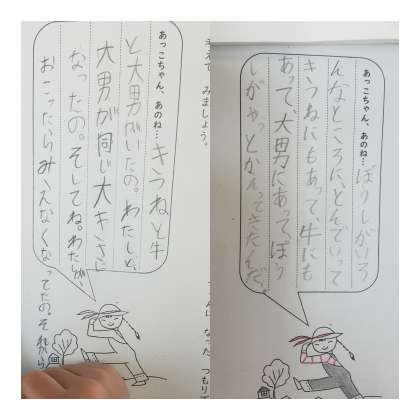 考えて みましょう。
になった つもりで
あっこちゃん、あのね…きつねと牛
と大男がいたの。わたしと、
大男が同じ大キさに
なったの。そしてね。わたしが、
おこったらみえなくなってたの。それから
あっこちゃん、あのね…ぼうしがいろ
んなところに、とんでいって
きつねにもあって、牛にも
あって、大男にあって、ぼう
しがやっとかえってきたんだ。